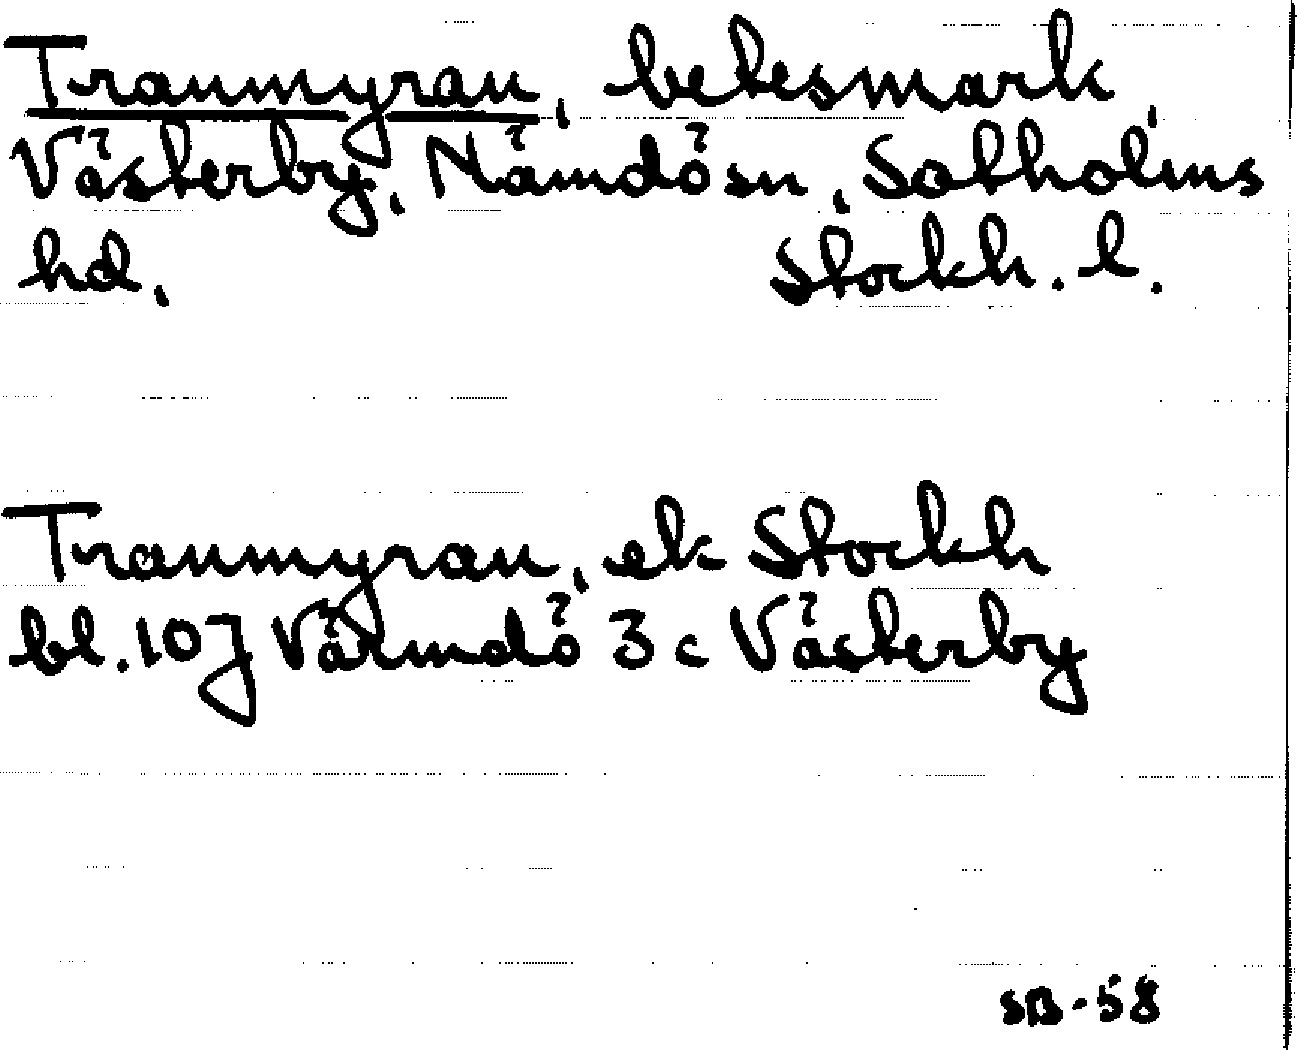 Tranmyran, betesmark,
Västerby, Nämdö sn, Sotholms
hd, Stockh. l.
Tranmyran, ek Stockh
bl. 10J Värmdö 3c Västerby
SB-58